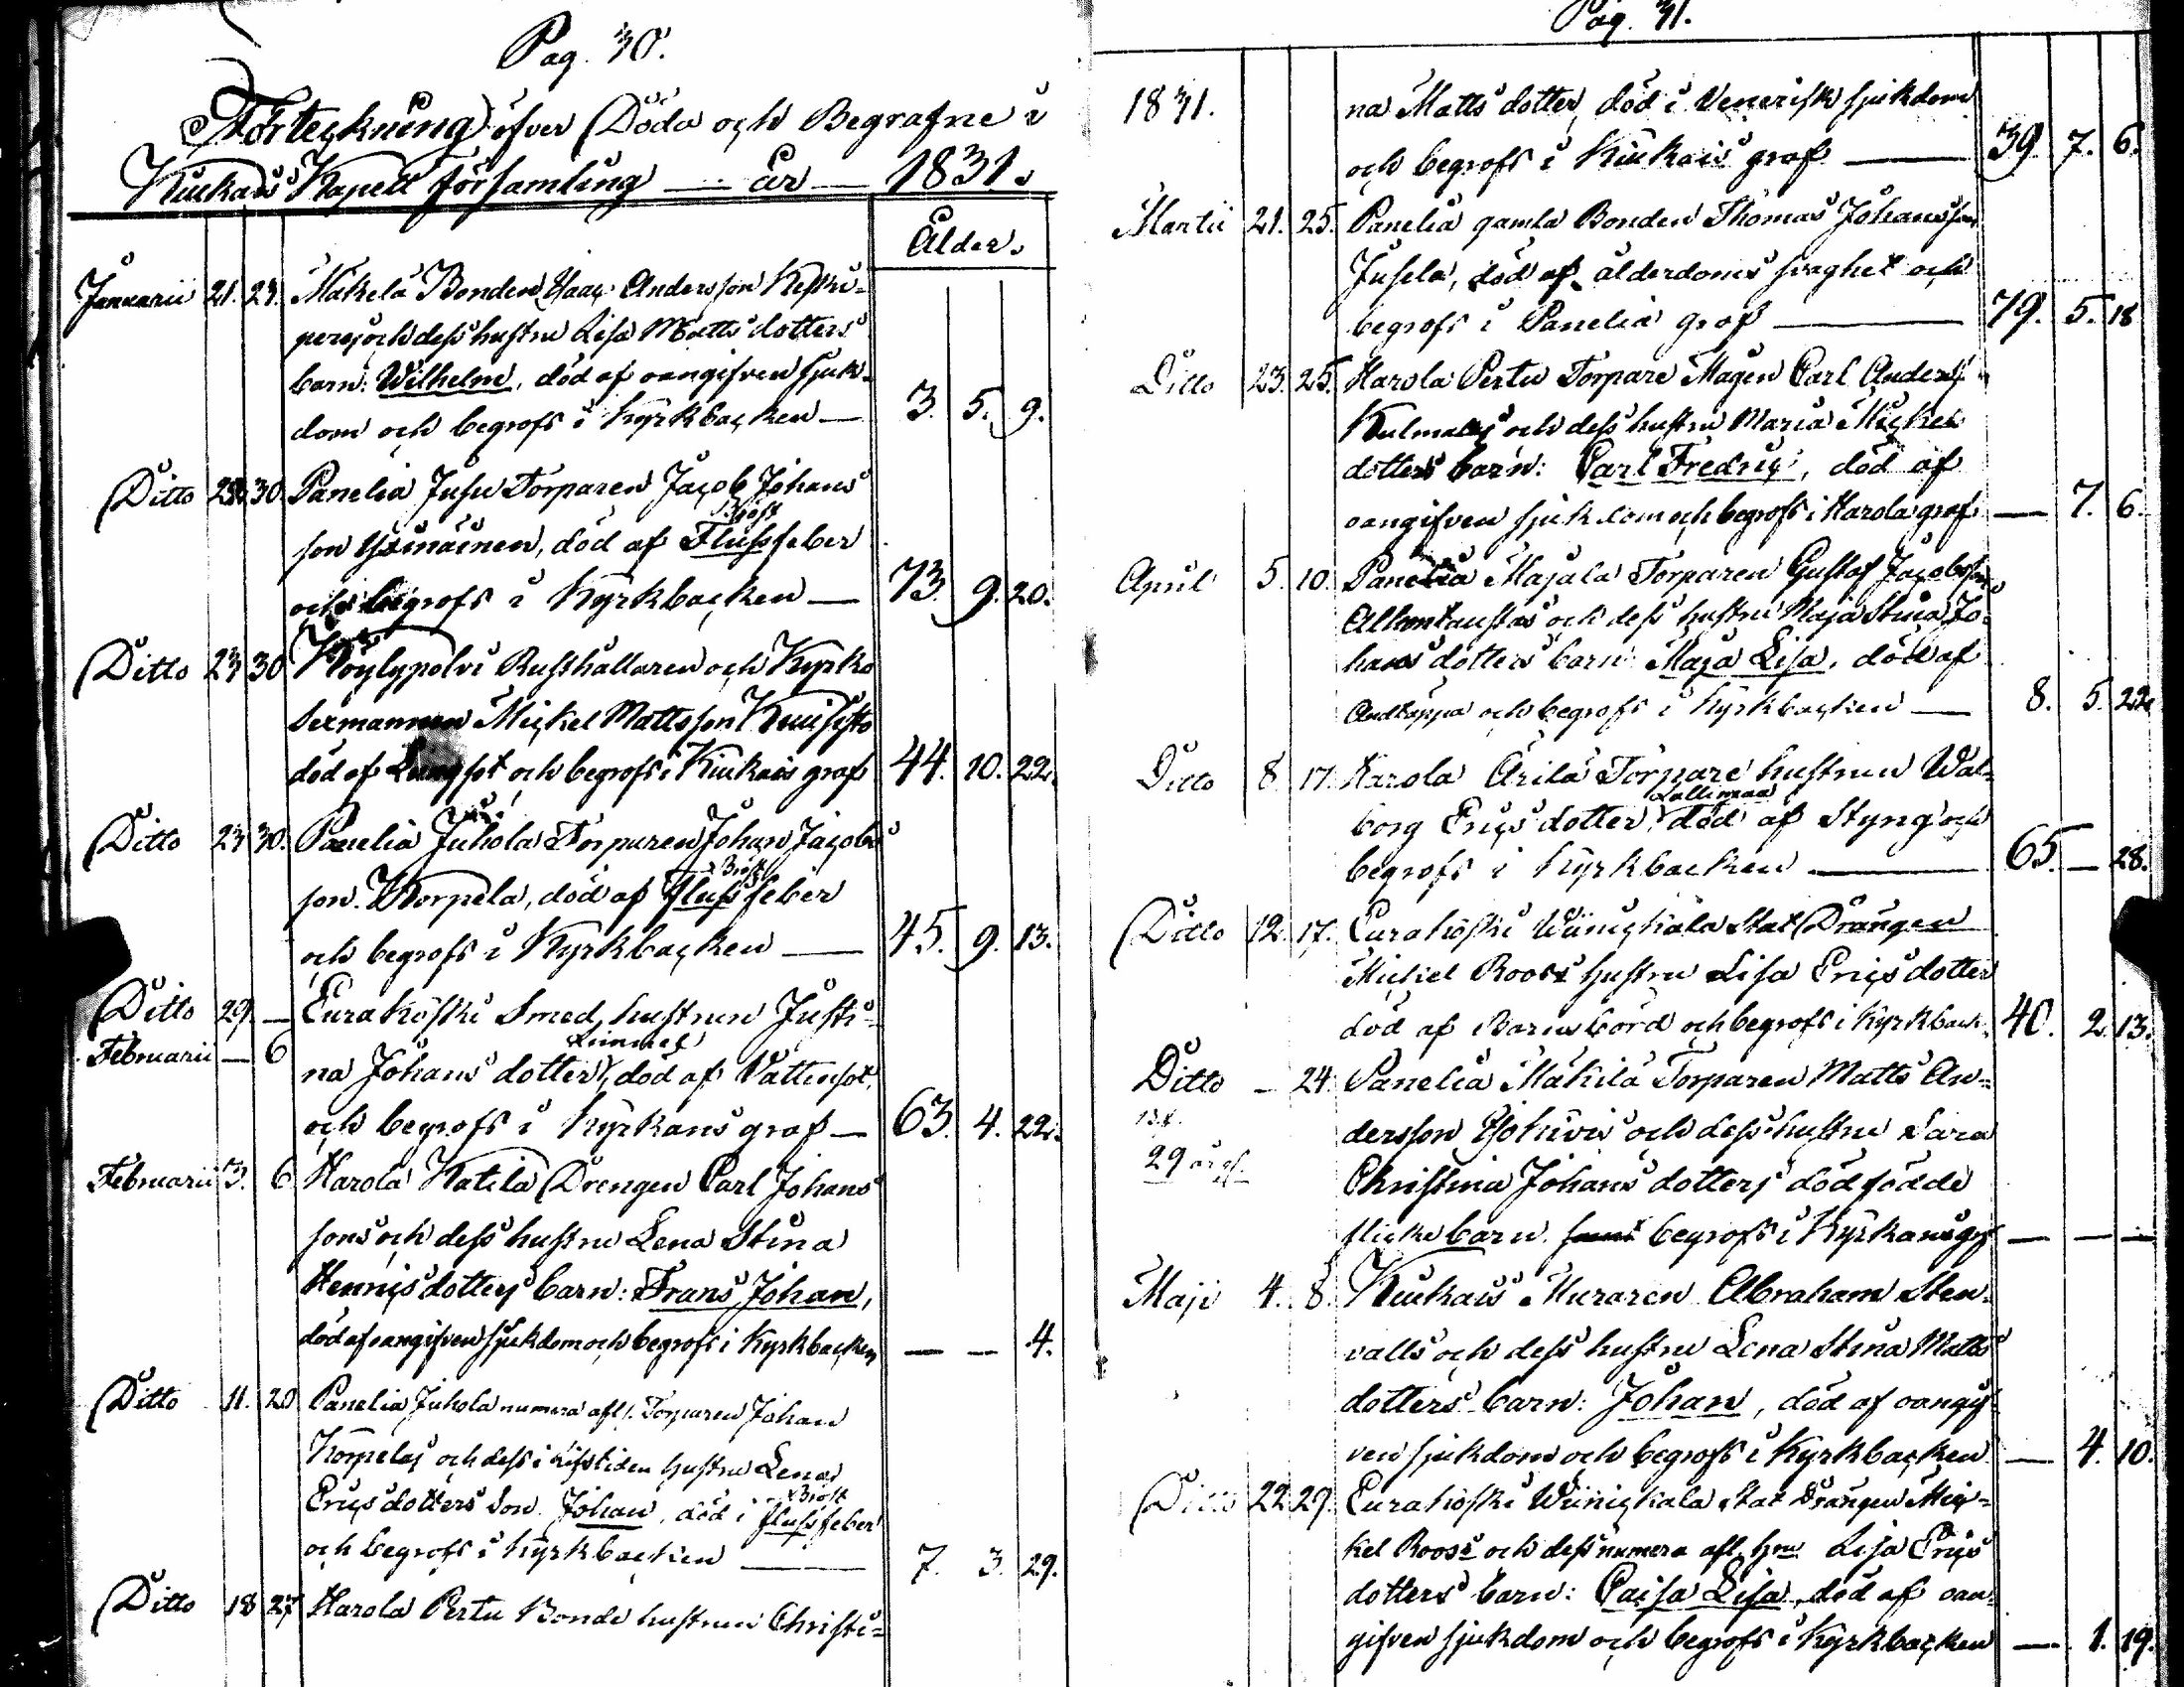 Pag. 30.
Förteckning öfver Döda och Begrafne i
Kiukais Kapell församling — år — 1831.
Ålder.
Januarii 21. 23. Mäkelä Bonden Isaac Andersson Keski-
perej och dess hustru Lisa Matts dotters
barn: Wilhelm, död af oangifven sjuk-
dom och begrofs i Kyrkbacken — 3. 5. 9.
Ditto 30. Panelia Jusu Torparen Jacob Johans
Bröst
son död af Flussfeber
och begrofs i Kyrkbacken — 73. 9. 20.
Ditto 23 30 Köylypolvi Rusthållaren och Kyrko
Sexmannen Mickel Mattsson
död af Lungsot och begrofs i Kiukais graf 44. 10. 22.
Ditto 23 30. Panelia Juhola Torparen Johan Jacobs
Bröst
son Korpela, död af Flussfeber
och begrofs i Kyrkbacken — 45. 9. 13.
Ditto 29. — Eurakoski Smed hustrun Justi-
Februarii — 6
na Johans dotter, död af Vattusot,
och begrofs i Kyrkans graf — 63. 4. 22.
Februarii 3. 6 Harola Katila Drengen Carl Johans
sons och dess hustru Lena Stina
Henricsdotters barn: Frans Johan,
död af oangifven sjukdom och begrofs i Kyrkbacken — — 4.
Ditto 11. 20 Panelia Juhola numera afl. Torparen Johan
Korpelas och dess i Lifstiden hustru Lena
Bröst
Ericsdotters Son Johan, död i flussfeber
och begrofs i Kyrkbacken — 7. 3. 29.
Ditto 18 27 Harola Pertu Bonde hustrun Christi-
Pag. 31.
1831. na Matts dotter, död i Venerisk sjukdom
och begrofs i Kiukais graf — 39. 7. 6.
Martii 21. 25. Panelia gamla Bonden Thomas Johansson
Jusela, död af ålderdoms svaghet och
begrofs i Panelia graf — 79. 5. 18
Ditto 23. 25. Harola Pertu Torpare Mågen Carl Anders
Kulmalas och dess hustru Maria Mickels
dotters barn: Carl Fredric, död af
oangifven sjukdom och begrofs i Harola graf — 7. 6.
April 5. 10. Panelia Majala Torparen Gustaf Jacobsson
och dess hustru Maja Stina Jo-
hans dotters barn Maja Lisa, död af
Andtäppa och begrofs i Kyrkbacken — 8. 5. 22.
Ditto 8. 17. Harola Arila Torpare hustrun Wal-
borg Erics dotter, död af Styng och
begrofs i Kyrkbacken — 65. — 28.
Ditto 12. 17. Eurakoski Wiinickala Stat Drängen
Mickel Rooss hustru Lisa Erics dotter
död af Barnsbörd och begrofs i Kyrkback. 40. 2. 13.
Ditto — 24. Panelia Mäkilä Torparen Matts An-
dersson och dess hustru Sara
29
Christina Johans dotters dödfödde
flicke barn. begrofs i Kyrkans graf — — —
Maji 4. 8. Kiukais Muraren Abraham Sten-
valls och dess hustru Lena Stina Matts
dotters barn: Johan, död af oangif-
ven sjukdom och begrofs i Kyrkbacken. — 4. 10.
Ditto 22. 29. Eurakoski Wiinickala Stat Drängen Mic-
kel Rooss och dess numera afl. hru Lisa Erics
dotters barn: Caisa Lisa, död af oan-
gifven sjukdom och begrofs i Kyrkbacken — 1. 19.